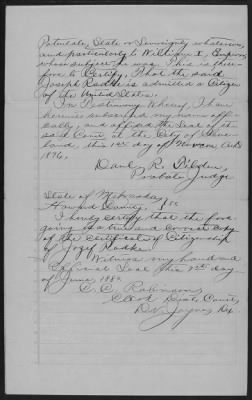 Potentate, State or Sovereignty whatsoever,
and particularly to William I, Emperor,
whose subject he was. This is there-
fore to Certify, That the said
Joseph Radke is admitted a Citizen
of the United States.
In Testimony Whereof, I have
hereunto subscribed my name offi-
cially, and affixed the Seal of the
said Court, at the City of Cleve-
land, this 1st day of A.D.
1876.
Danl R. Tilden,
Probate Judge
State of Nebraska } ss
Howard County }
I hereby certify that the fore-
going is a true and correct copy
of the Certificate of Citizenship
of Jozef Radke.
Witness my hand and
Official Seal this day
of June, 188
C. C. Robinson
Clerk Dist. Court,
Dep.